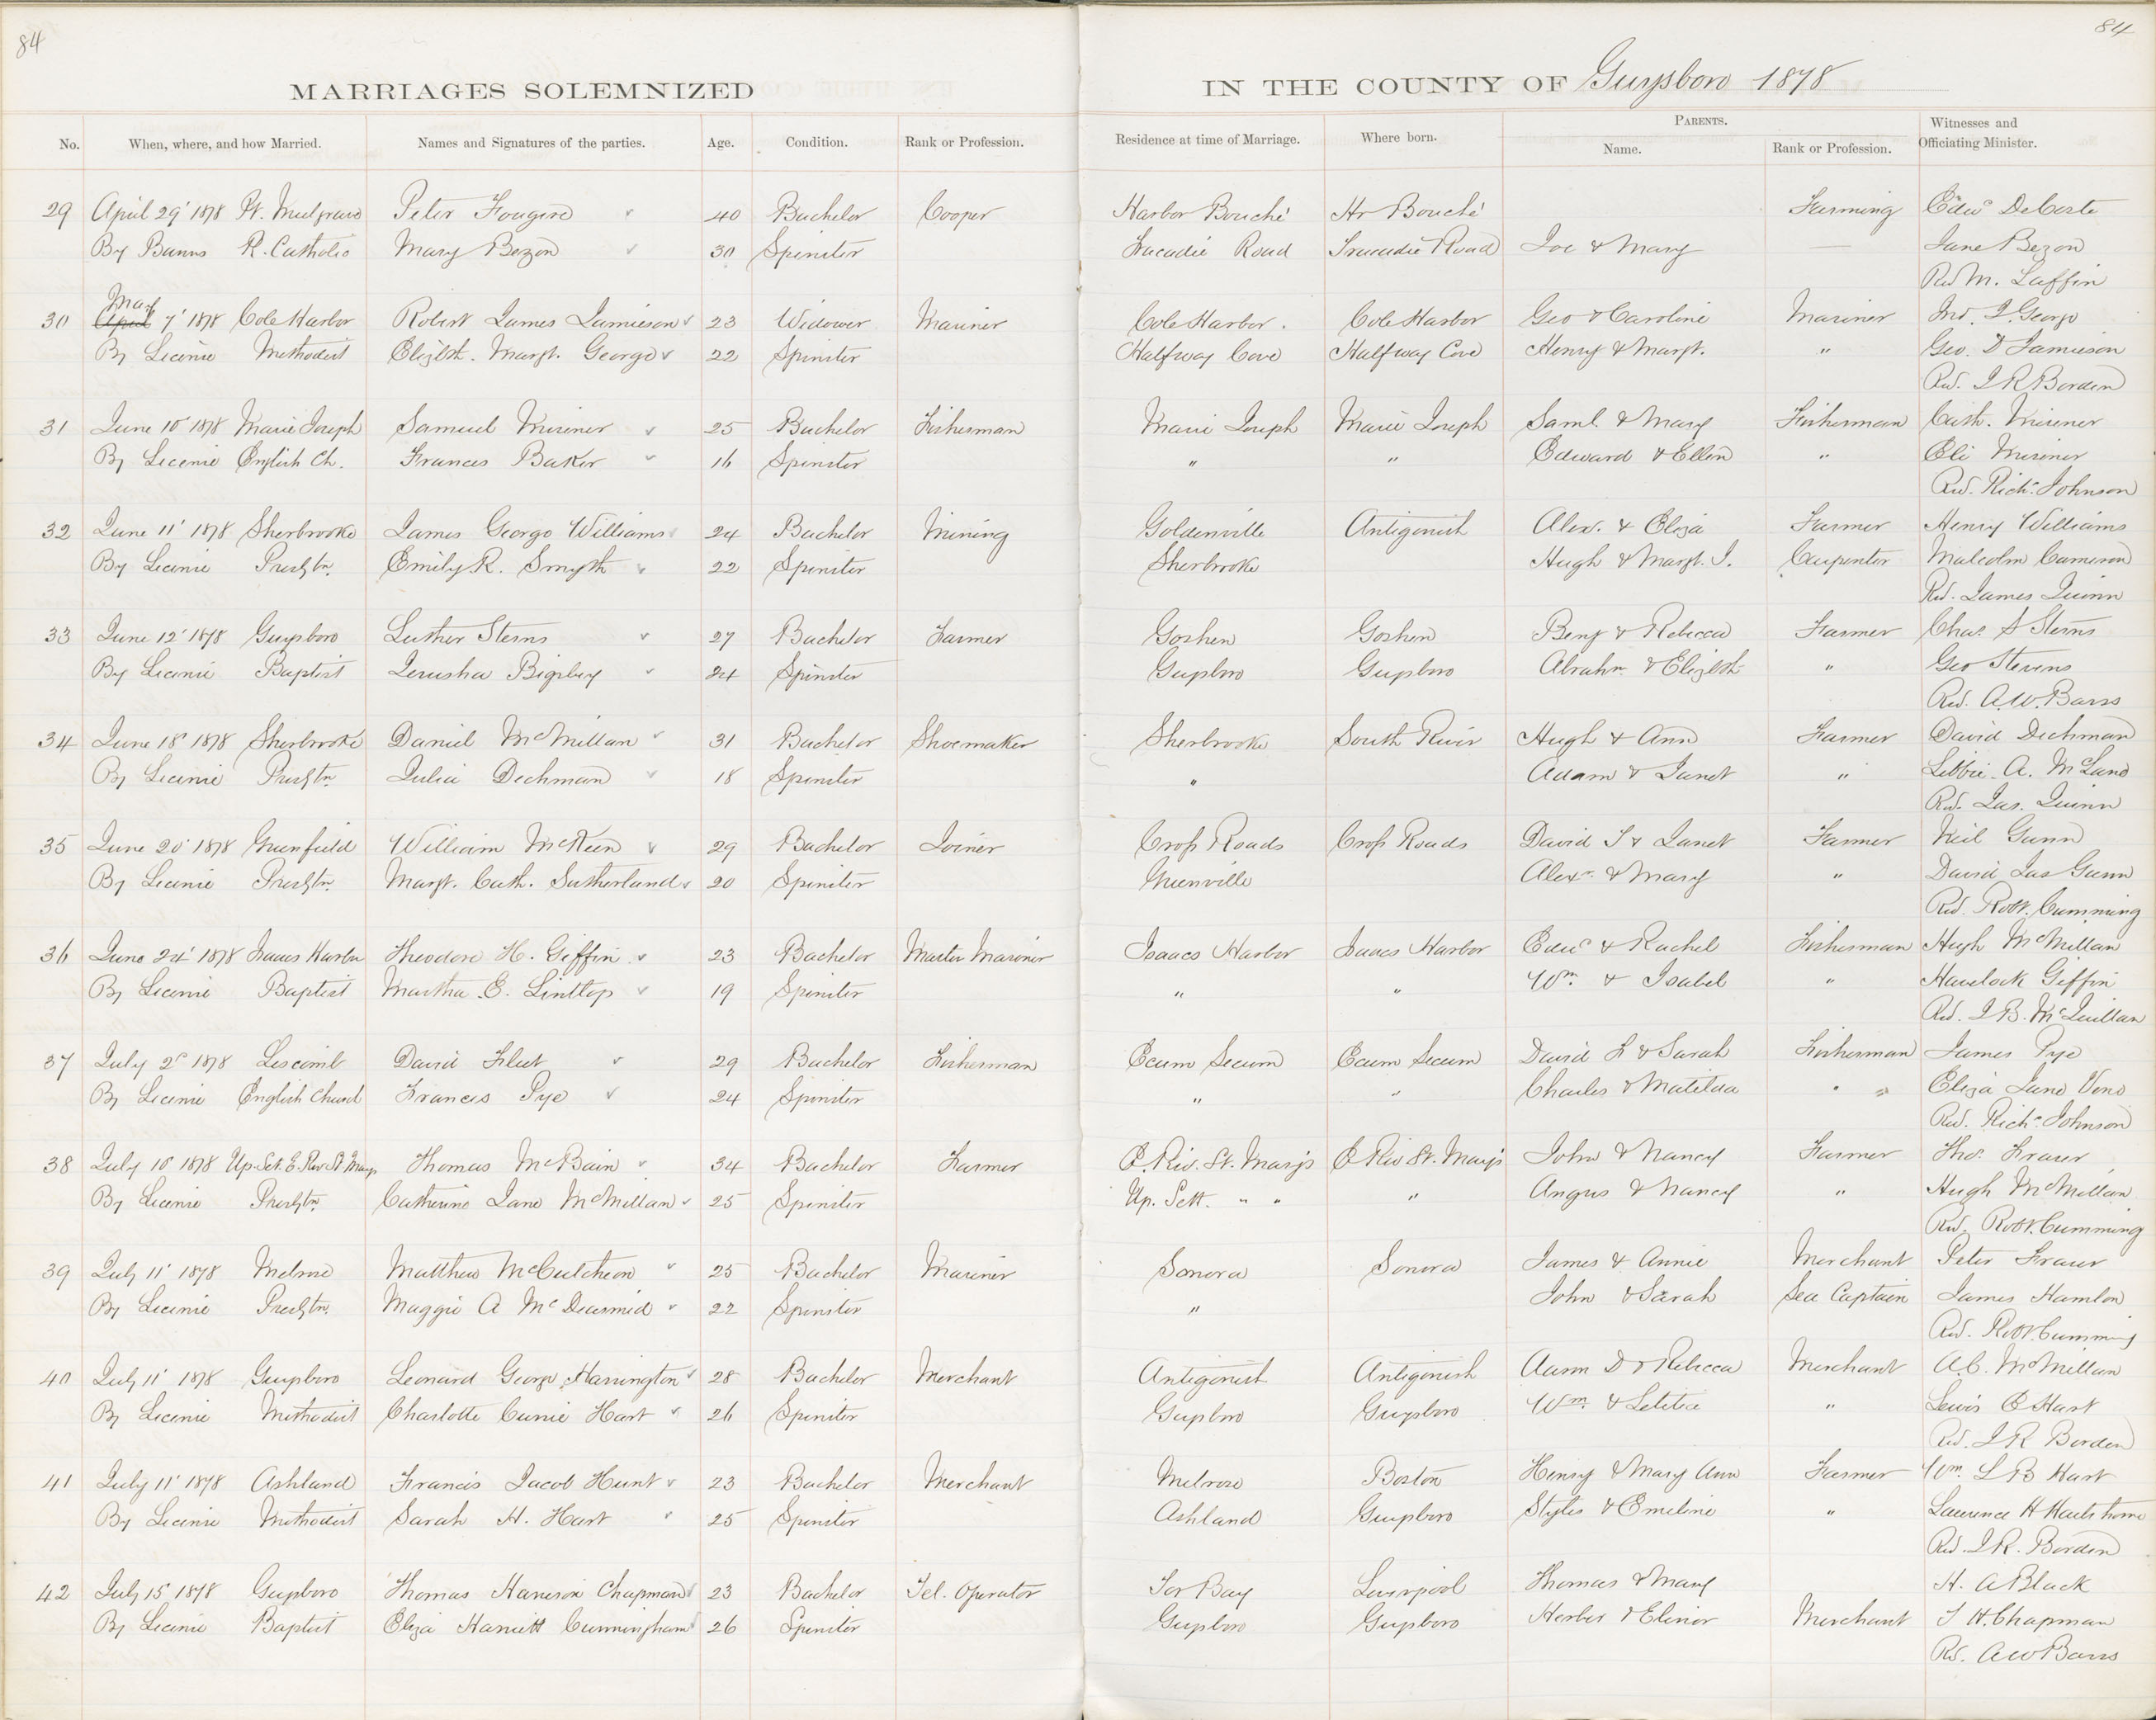 84
84
MARRIAGES SOLEMNIZED IN THE COUNTY OF Guysboro 1878
No. When, where, and how Married. Names and Signatures of the parties. Age. Condition. Rank or Profession. Residence at time of Marriage. Where born. PARENTS. Name. Rank or Profession. Witnesses and Officiating Minister.
29 April 29' 1878 Pt. Mulgrave Peter Fougere 40 Bachelor Cooper Harbor Bouché Hr Bouché Farming Edwd DeCoste
By Banns R. Catholic Mary Bezon 30 Spinster Tracadie Road Tracadie Road Joe & Mary — Jane Bezon
Rev M. Laffin
30 April May 7' 1878 Cole Harbor Robert James Jamieson 23 Widower Mariner Cole Harbor. Cole Harbor Geo & Caroline Mariner Jno. J. George
By License Methodist Elizbth. Margt. George 22 Spinster Halfway Cove Halfway Cove Henry & Margt. " Geo. D Jamieson
Rev. J R Borden
31 June 10' 1878 Marie Joseph Samuel Misener 25 Bachelor Fisherman Marie Joseph Marie Joseph Saml. & Mary Fisherman Cath. Misener
By License English Ch. Frances Baker 16 Spinster " " Edward & Ellen " Eli Misener
Rev. Richd Johnson
32 June 11' 1878 Sherbrooke James George Williams 24 Bachelor Mining Goldenville Antigonish Alex. & Eliza Farmer Henry Williams
By License Presbtn. Emily R. Smyth 22 Spinster Sherbrooke Hugh & Margt. J. Carpenter Malcolm Cameron
Rev. James Quinn
33 June 12' 1878 Guysboro Luther Sterns 27 Bachelor Farmer Goshen Goshen Benj & Rebecca Farmer Chas. S Sterns
By License Baptist Jerusha Bigsbey 24 Spinster Guysboro Guysboro Abrahm. & Elizbth " Geo Stevens
Rev. A.W. Barss
34 June 18' 1878 Sherbrooke Daniel McMillan 31 Bachelor Shoemaker Sherbrooke South River Hugh & Ann Farmer David Dechman
By License Presbtn. Julia Dechman 18 Spinster " Adam & Janet " Libbie A. McLane
Rev. Jas. Quinn
35 June 20' 1878 Greenfield William McKeen 29 Bachelor Joiner Cross Roads Cross Roads David S & Janet Farmer Neil Gunn
By License Presbtn. Margt. Cath. Sutherland 20 Spinster Greenville Alexr. & Mary " David Jas Gunn
Rev. Robt. Cumming
36 June 24' 1878 Isaacs Harbor Theodore H. Giffin 23 Bachelor Master Mariner Isaacs Harbor Isaacs Harbor Edwd & Rachel Fisherman Hugh McMillan
By License Baptist Martha E. Sinttop 19 Spinster " " Wm. & Isabel " Havelock Giffin
Rev. J. B. McQuillan
37 July 2d 1878 Liscomb David Fleet 29 Bachelor Fisherman Ecum Secum Ecum Secum David F & Sarah Fisherman James Pye
By License English Church Frances Pye 24 Spinster " " Charles & Matilda " " Eliza Jane Veno
Rev. Richd Johnson
38 July 10' 1878 Up. Set. E. Riv St Marys Thomas McBain 34 Bachelor Farmer E. Riv. St. Marys E Riv St. Marys John & Nancy Farmer Tho. Fraser
By License Presbtn. Catherine Jane McMillan 25 Spinster Up. Sett. " " " Angus & Nancy " Hugh McMillan
Rev. Robt. Cumming
39 July 11' 1878 Melrose Matthew McCutcheon 25 Bachelor Mariner Sonora Sonora James & Annie Merchant Peter Fraser
By License Presbtn. Maggie A McDearmid 22 Spinster " John & Sarah Sea Captain James Hamlon
Rev. Robt. Cumming
40 July 11' 1878 Guysboro Leonard George Harrington 28 Bachelor Merchant Antigonish Antigonish Aaron D & Rebecca Merchant A.C. McMillan
By License Methodist Charlotte Cunie Hart 26 Spinster Guysboro Guysboro Wm. & Letitia " Lewis E Hart
Rev. J R Borden
41 July 11' 1878 Ashland Francis Jacob Hunt 23 Bachelor Merchant Melrose Boston Henry & Mary Ann Farmer Wm. L B Hart
By License Methodist Sarah H. Hart 25 Spinster Ashland Guysboro Styles & Emeline " Laurence H Hartshorne
Rev. J. R. Borden
42 July 15' 1878 Guysboro Thomas Harrison Chapman 23 Bachelor Tel. Operator Tor Bay Liverpool Thomas & Mary H. A Black
By License Baptist Eliza Harriett Cunningham 26 Spinster Guysboro Guysboro Herber & Elinor Merchant T H. Chapman
Rev. A W Barss